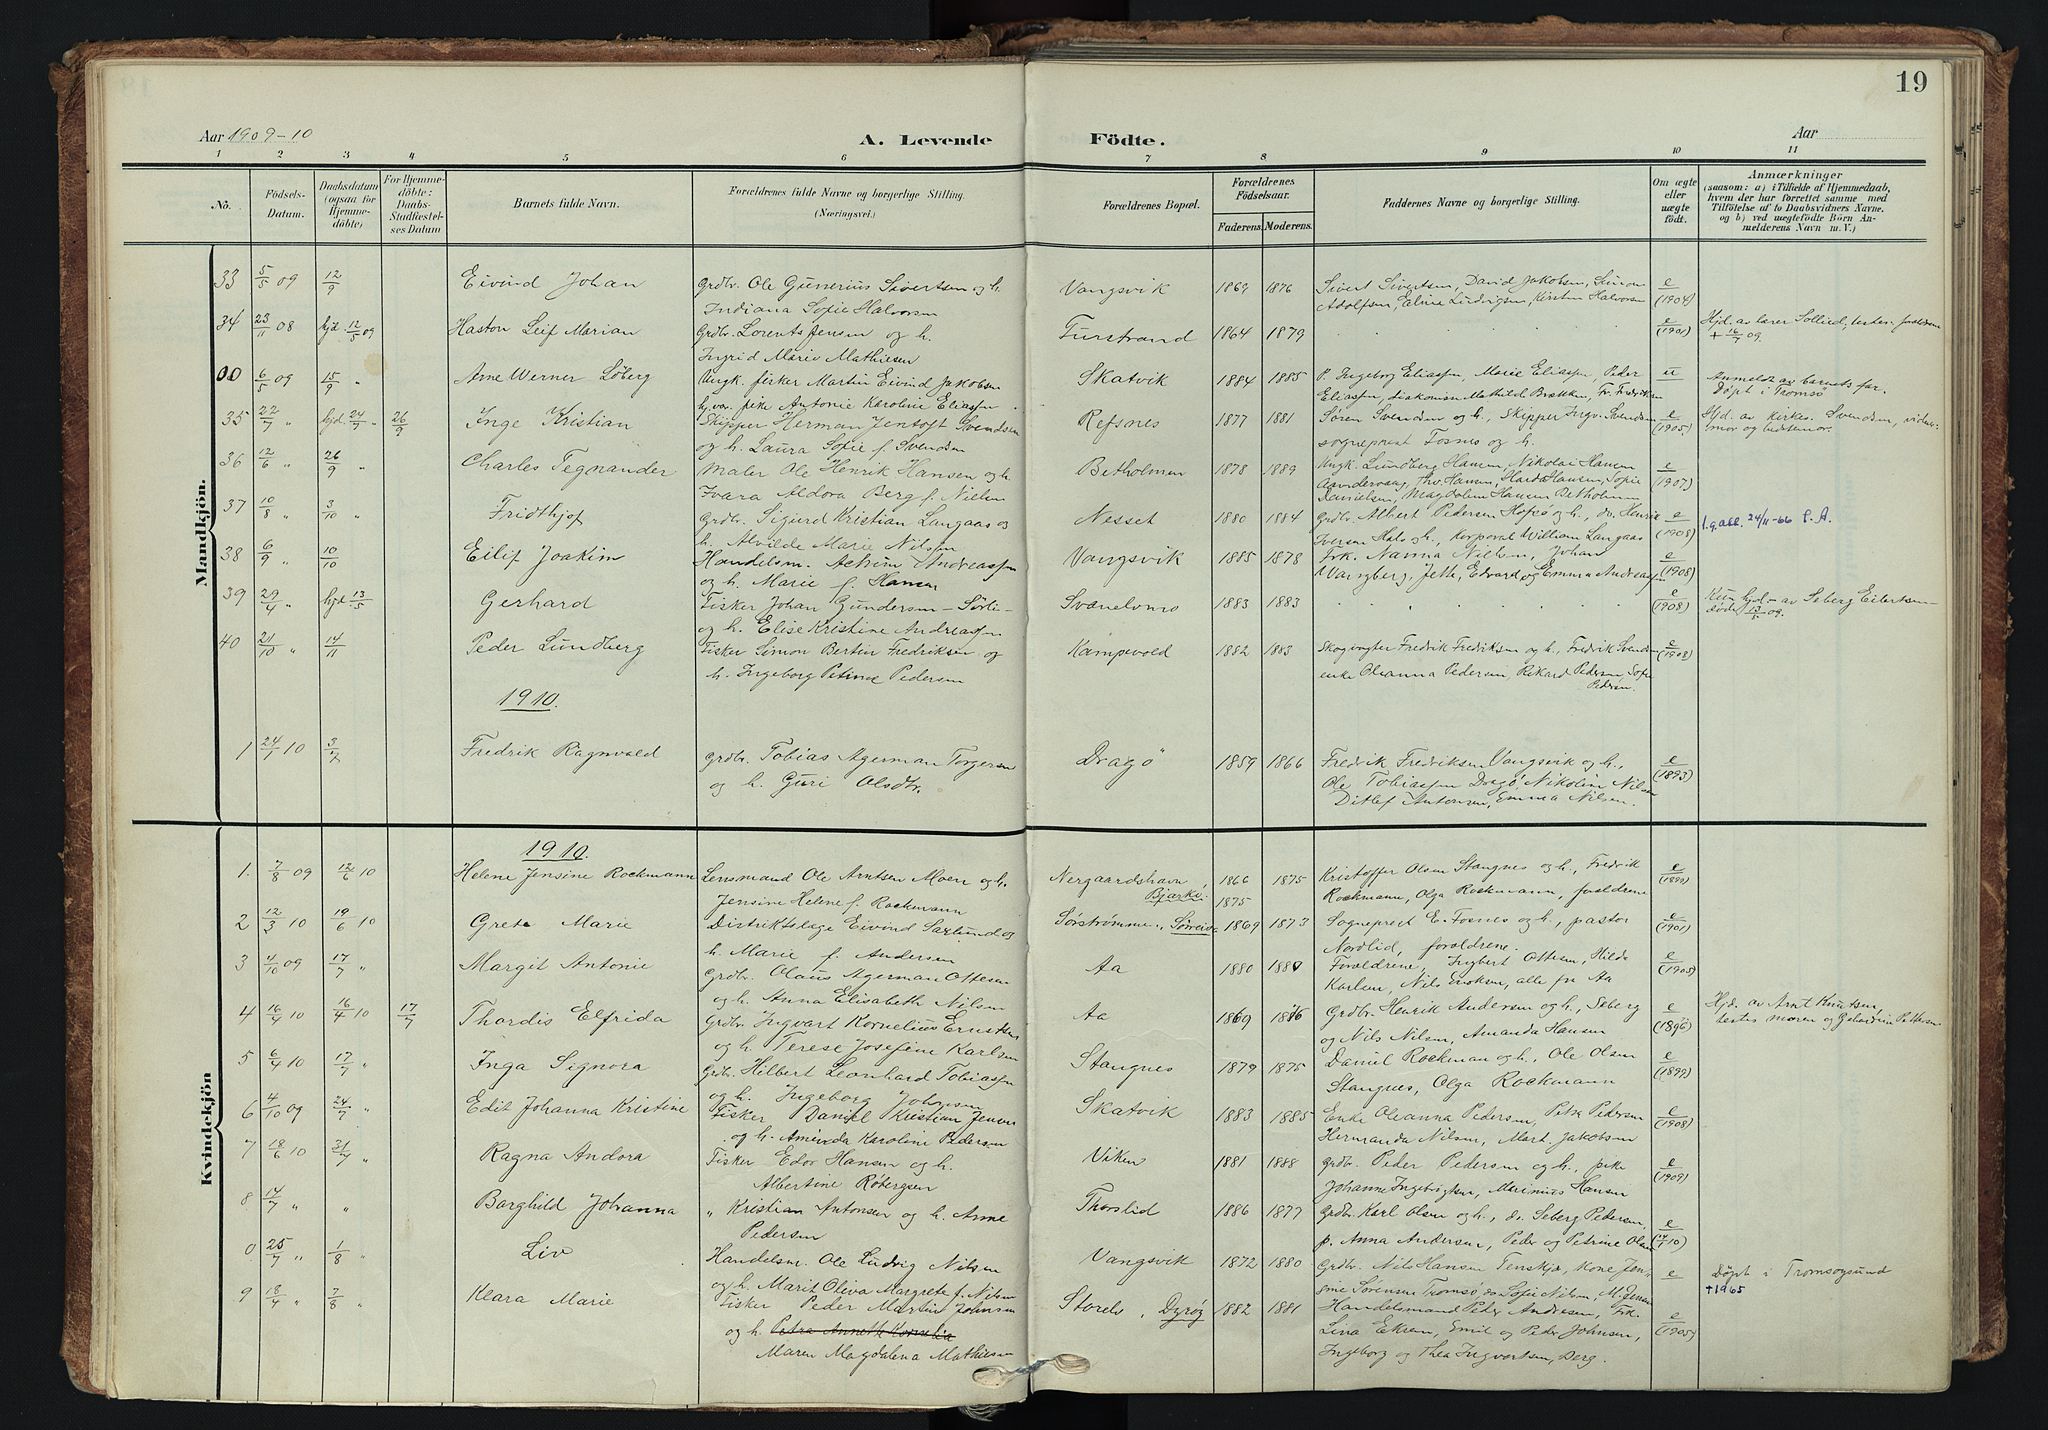 19
Aar 1909-10
A. Levende Födte.
Aar
1 2 3 4 5 6 7 8 9 10 11
No.
Födsels-Datum.
Daabsdatum (ogsaa for Hjemme-döbte)
For Hjemme-döbte: Daabs-Stadfæstel-ses Datum
Barnets fulde Navn.
Forældrenes fulde Navne og borgerlige Stilling. (Næringsvei.)
Forældrenes Bopæl.
Forældrenes Födselsaar.
Faderens. Moderens.
Faddernes Navne og borgerlige Stilling.
Om ægte eller uægte födt.
Anmærkninger
(saasom: a) i Tilfælde af Hjemmedaab, hvem der har forrettet samme med Tilföielse af to Daabsvidners Navne, og b) ved uægtefödte Börn Anmelderens Navn m. V.)
Mandkjön.
33 5/5 09 12/9 Eivind Johan Grdbr. Ole Gunerius Sivertsen og h. Vangsvik 1869 1876 Sivert Sivertsen, David Jakobsen, Simon e
Indiana Sofie Halvorsen Adolfsen, Ludvigsen, Kirsten Halvorsen (1904)
34 23/11 08 hjd. 12/5 09 Haston Leif Marian Grdbr. Lorents Jensen og h. Furstrand 1864 1879 e (1901) Hjd. av lærer Sollied, testes: foreldrene
Ingrid Marie Mathisen + 16/7 09.
00 6/5 09 15/9 " Arne Werner Løberg Ungk. fisker Martin Eivind Jakobsen Skatvik 1884 1885 P. Ingeborg Eliassen, Marie Eliassen, Peder Anmeldt av barnets far.
pike Antonie Karoline Eliassen Eliassen, diakonisse Mathild Brækken, Fr. Fredriksen Døpt i Tromsø
35 22/7 " hjd. 24/7 " 26/9 Inge Kristian Skipper Herman Jentoft Svendsen Refsnes 1877 1881 Søren Svendsen og h., Skipper Ingv. Svendsen e
og h. Laura Sofie f. Svendsen sogneprest Fosnes og h. (1905) mor og bedstemor.
36 12/6 " 26/9 " Charles Tegnander Maler Ole Henrik Hansen og h. Betholmen 1878 1889 Ungk. Lundberg Hansen, Nikolai Hansen e
Ivara Aldora Berg f. Nielsen Hansen, Sofie (1907)
Danielsen, Magdalene Hansen Betholmen
37 10/8 " 3/10 " Fridthjof Grdbr. Sigurd Kristian Langaas og Nesset 1880 1884 Grdbr. Albert Pedersen Hofsø og h., e 24/11-66 P. A.
h. Alvilde Marie Nilsen Iversen Hals og h., Korporal William Langaas (1908)
38 6/9 " 10/10 Eilif Joakim Handelsm. Achim Andreassen Vangsvik 1885 1878 Frk. Nanna Nielsen, Johan e
og h. Marie f. Hansen Wangberg, Edvard og Emma Andreassen (1908)
39 29/4 " hjd 13/5 Gerhard Fisker Johan Gundersen - Sørli- Svanelvmo 1883 1883 e (1908) Kun hjd. av Seberg Eilertsen
og h. Elise Kristine Andreassen død 13/5 09.
40 21/10 " 14/11 Peder Lundberg Fisker Simon Bertin Fredriksen og Kampevold 1882 1883 Skogvogter Fredrik Fredriksen og h., Fredrik Svendsen e
h. Ingeborg Petrine Pedersen enke Oleanna Pedersen, Rikard Pedersen, Sofie Pedersen. (1908)
1910.
1 24/1 10 3/7 Fredrik Ragnvald Grdbr. Tobias Agerman Torgersen Dragø 1859 1866 Fredrik Fredriksen Vangsvik og h., e
og h. Guri Olsdtr. Ole Tobiassen Dragø, Nikoline Nilsen (1893)
Ditlef Antonsen, Emma Nilsen.
Kvindekjön
1910.
1. 7/8 09 12/6 10 Helene Jensine Rockmann Lensmand Ole Arntsen Moen og h. Nergaardshavn 1866 1875 Kristoffer Olsen Stangnes og h., Fredrik e
Jensine Helene f. Rockmann Bjarkø. 1875 Rockmann, Olga Rockmann, foreldrene (1899)
2 12/3 10 19/6 10 Grete Marie Distriktslæge Eivind og Sørstrømmen, Sørreisa 1869 1873 Sogneprest E. Fosnes og h., pastor e
h. Marie f. Andersen Nordlid, foreldrene. (1901)
3 4/10 09 17/7 " Margit Antonie Grdbr. Olaus Agerman Ottesen Aa 1880 1880 Foreldrene, Ingbert Ottesen, Hilda e
og h. Anna Elisabeth Nilsen Karlsen, Nils Eriksen, alle fra Aa (1905)
4 16/4 10 16/4 10 17/7 Thordis Elfrida Grdbr. Ingvart Kornelius Ernstsen Aa 1869 1876 Grdbr. Henrik Andersen og h., Seberg e Hjd. av Arnt Knutsen,
og h. Terese Josefine Karlsen og Nils Nilsen, Amanda Hansen (1896) testes moren og
5 6/4 10 17/7 " Inga Signora Grdbr. Hilbert Leonhard Tobiassen Stangnes 1879 1875 Daniel Rockman og h., Ole Olsen e
og h. Ingeborg Johnsen Stangnes, Olga Rockmann (1899)
6 4/10 09 24/7 " Edit Johanna Kristine Fisker Daniel Kristian Jensen Skatvik 1883 1885 Enke Oleanna Pedersen, Petra Pedersen e
og h. Aminda Karoline Pedersen Hermanda Nilsen, Mart. Jakobsen (1908)
7 18/6 10 31/7 " Ragna Andora Fisker Edor Hansen og h. Viken 1881 1888 Grdbr. Peder Pedersen og h., pike e
Albertine Røbergsen Johanne Ingebrigtsen, Marinius Hansen (1909)
8 14/7 " " Borghild Johanna " Kristian Antonsen og h. Anne Thorslid 1886 1877 Grdbr. Karl Olsen og h., do. Seberg Pedersen, e
Pedersen p. Anna Andersen, Peder og Petrine Olsen
0 25/7 " 1/8 " Liv Handelsm. Ole Ludvig Nilsen Vangsvik 1872 1880 Grdbr. Nils Hansen Tenskjær, kone Jen- e Døpt i Tromsøysund
og h. Marit Oliva Margrete f. Nilsen sine Sørensen Tromsø, do Sofie Nilsen, M. Jensen + 1965
9 18/4 " 7/8 " Klara Marie Fisker Peder Martin Johnsen Storelv, Dyrøy 1882 1881 Handelsmand Peder Andresen, Frk. e
og h. Petra Annette Kornelia Lina Eksen, Emil og Peder Johnsen, (1905)
Maren Magdalena Mathisen Ingeborg og Thea Ingvartsen, Berg.